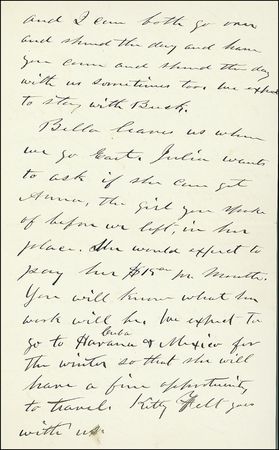 and I can both go over
and spend the day and have
you come and spend the day
with us sometimes too. We expect
to stay with Buck.
Bella leaves us when
we go East. Julia wants
to ask if she can get
Anna, the girl you spoke
of before we left, in her
place. She would expect to
pay her $15.00 pr. Month.
You will know what her
work will be. We expect to
go to Havana Cuba & Mexico for
the winter so that she will
have a fine opportunity
to travel. Kitty Felt goes
with us.